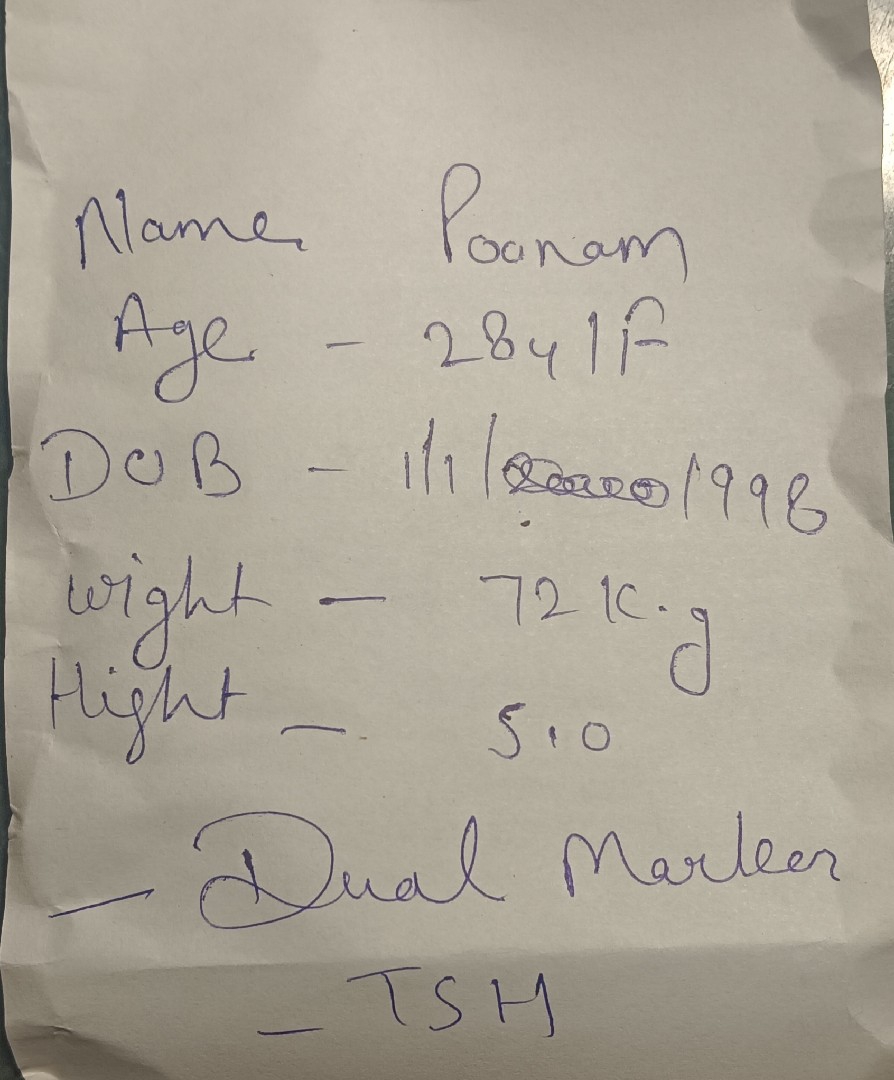 Name Poonam
Age - 28y/F
DOB - 1/1/1998
wight - 72 K.g
Hight - 5.0
- Dual Marker
- TSH